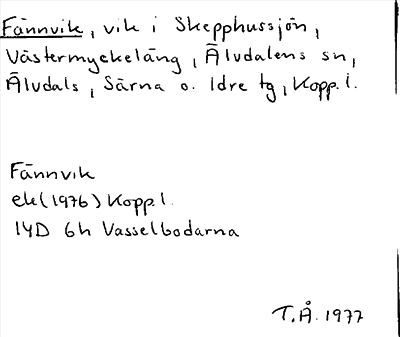 Fännvik, vik i Skepphussjön,
Västermyckeläng, Älvdalens sn,
Älvdals, Särna o. Idre tg, Kopp.l.
Fännvik
ek(1976) Kopp.l.
14D 6h Vasselbodarna
T.Å. 1977